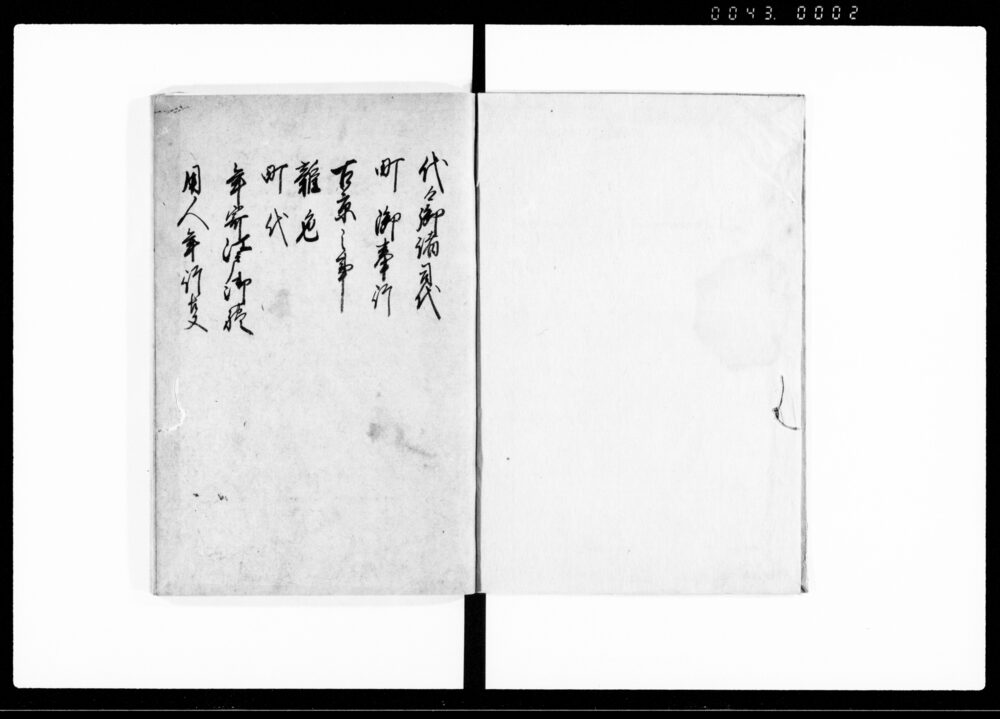 0043. 0002
代々御諸司代
町御奉行
古京之事
雑色
町代
年寄
用人年行支